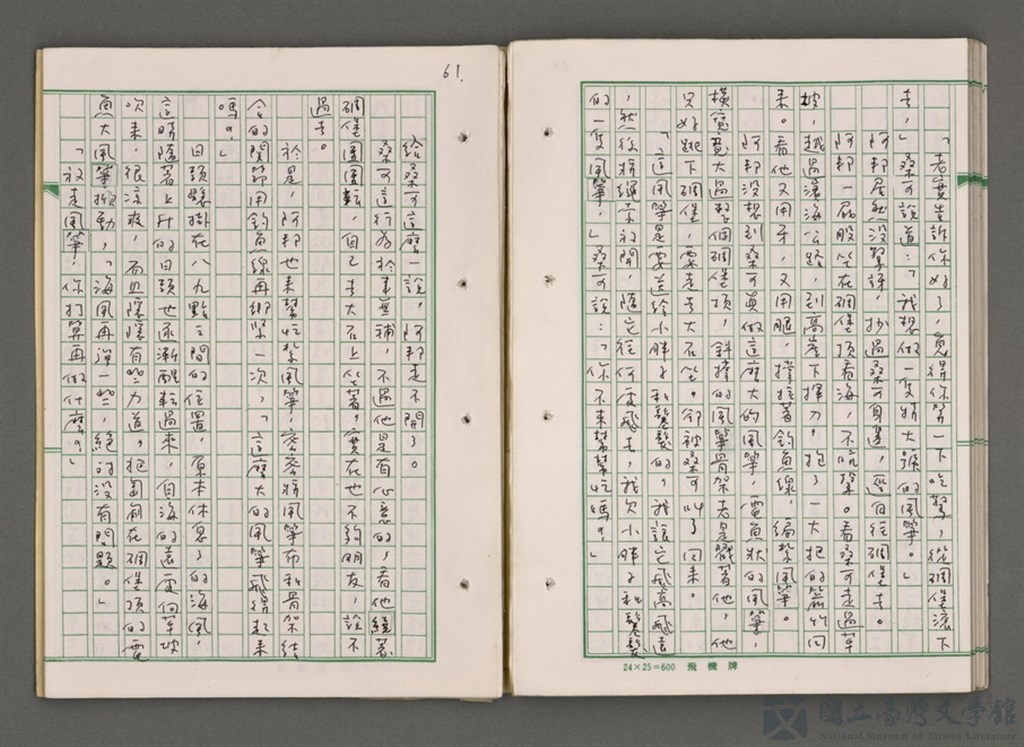 「老實告訴你好了，免得你等一下吃驚，從碉堡滾下
去，」桑可說道：「我想做一隻特大號的風箏。」
阿邦居然沒驚訝，抄過桑可身邊，逕自往碉堡去。
阿邦一屁股坐在碉堡頂看海，不吭聲。看桑可走過草
坡，越過濱海公路，到高崖下揮刀，抱了一大把的箭竹回
來。看他又用牙，又用腿，撐拉著釣魚線，編紮風箏。
阿邦沒想到桑可真做這麼大的風箏，電魚狀的風箏，
橫寬竟大過整個碉堡頂，斜撐的風箏骨架老是戳著他，他
只好跳下碉堡，要走去大石坐。卻被桑可叫了回來。
「這風箏是要送給小胖子和鬈髮的，我讓它飛高飛遠
，然後將繩索放開，隨它往何處飛去，我欠小胖子和鬈髮
的一隻風箏，」桑可說：「你不來幫幫忙嗎？」
61.
給桑可這麼一說，阿邦走不開了。
桑可這行為於事無補，不過他是有心意的，看他繞著
碉堡團團轉，自己去大石上坐著，實在也不夠朋友，說不
過去。
於是，阿邦也來幫忙紮風箏，密密將風箏布和骨架結
合的關節用釣魚線再綁緊一次，「這麼大的風箏飛得起來
嗎？」
日頭懸掛在八九點之間的位置，原本休息了的海風，
這時隨著上升的日頭也逐漸醒轉過來，自海的遠處向草坡
吹來，很涼爽，而且隱隱有些力道。把匍匐在碉堡頂的電
魚大風箏掀動，「海風再彈一些，絕對沒有問題。」
「放走風箏，你打算再做什麼？」
24×25=600 飛機牌
國立臺灣文學館
National Museum of Taiwan Literature